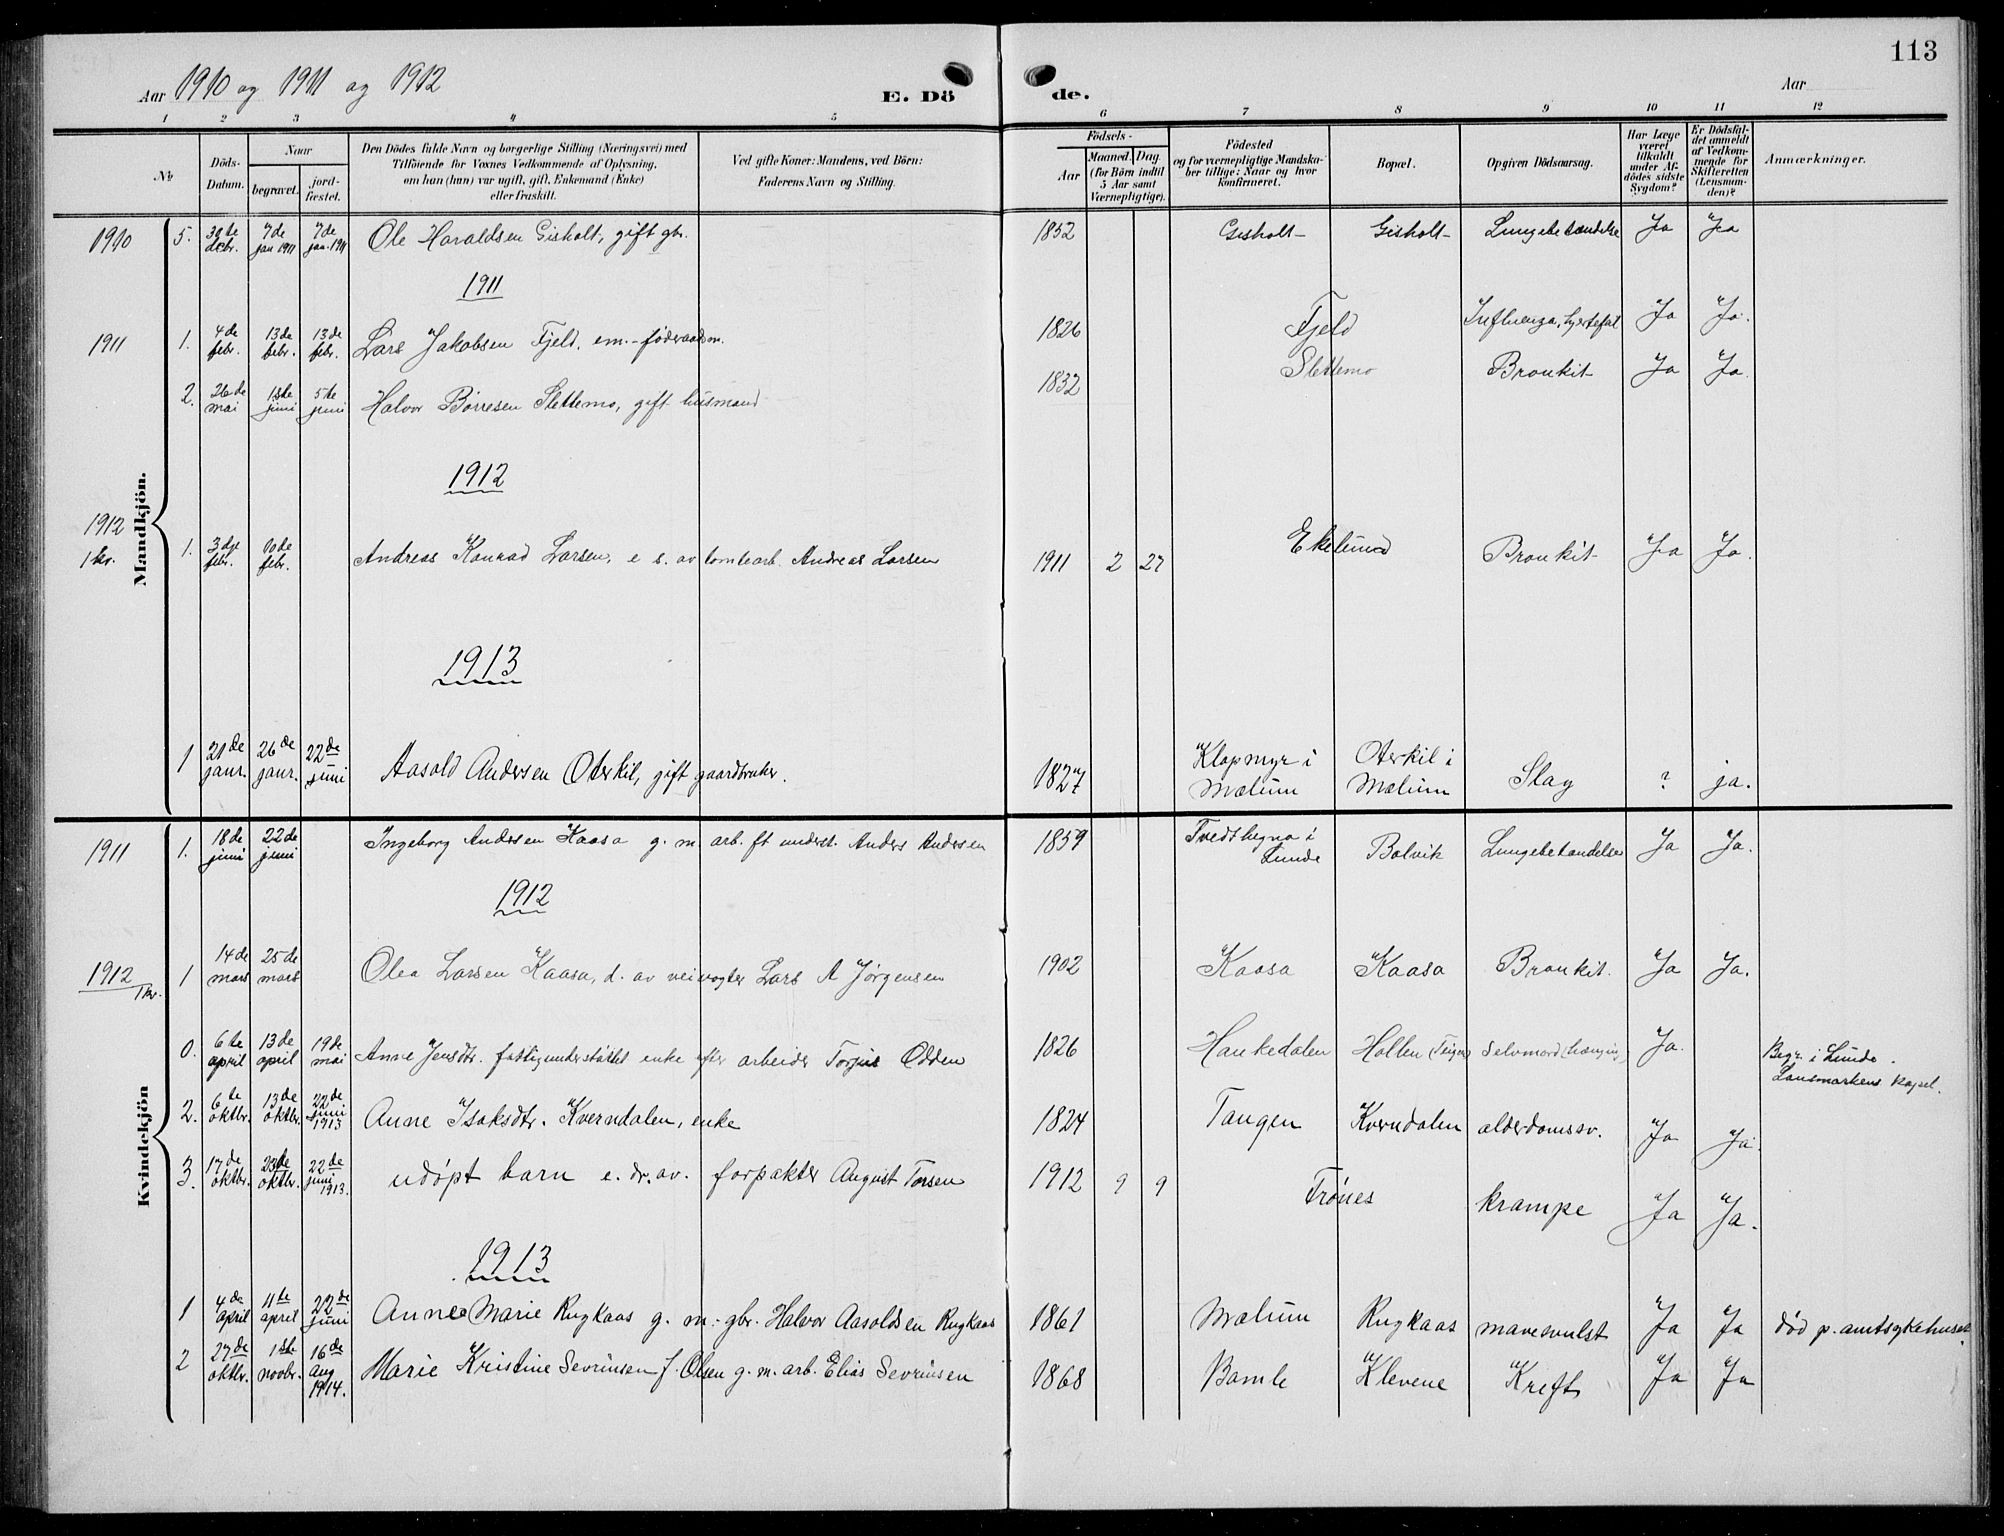 113
Aar 1910 og 1911 og 1912
E. Dö de.
Aar
1 2 3 4 5 6 7 8 9 10 11 12
№
Döds-Datum.
Naar
begravet.
jord-fæstet.
Den Dödes fulde Navn og borgerlige Stilling (Næringsvei) med
Tilföiende for Voxnes Vedkommende af Oplysning,
om han (hun) var ugift, gift, Enkemand (Enke)
eller fraskilt.
Ved gifte Koner: Mandens, ved Börn:
Faderens Navn og Stilling.
Födsels-
Aar
Maaned. Dag
(for Börn indtil
5 Aar samt
Værnepligtige).
Födested
og for værnepligtige Mandska-
ber tillige: Naar og hvor
konfirmeret.
Bopæl.
Opgiven Dödsaarsag.
Har Læge
været
tilkaldt
under Af-
dödes sidste
Sygdom?
Er Dödsfal-
det anmeldt
af Vedkom-
mende for
Skifteretten
(Lensman-
den)?
Anmærkninger.
Mandkjön.
1910 5. 30te decbr. 7de jan 1911 7de jan. 1911 Ole Haraldsen Gisholt, gift gbr. 1852 Gisholt Gisholt Lungebetændelse Ja Ja
1911
1911 1. 4de febr. 13de febr. 13de febr. Lars Jakobsen Fjeld, em. føderaadsm. 1826 Fjeld Influenza, hjertefeil Ja Ja.
2. 26de mai 1ste juni 5te juni Halvor Børresen Slettemo, gift husmand 1832 Slettemo Bronkit Ja Ja
1912
1912 1 kv. 1. 3dje febr. 10de febr. Andreas Konrad Larsen, e s. av tomtearb. Andreas Larsen 1911 2 27 Ekelund Bronkit Ja Ja.
1913
1 21de janr. 26de janr. 22de juni Aasold Andersen Oterkil, gift gaardbruker. 1827 Klopmyr i Mælum Oterkil i Mælum Slag ? ja.
Kvindekjön
1911 1. 18de juni 22de juni Ingeborg Andersen Kaasa g. m. arb. ft underst. Anders Andersen 1859 Tvedthegna i Lunde Bolvik Lungebetændelse Ja Ja.
1912
1912 1 kv. 1 14de mars 25de mars Olea Larsen Kaasa, d. av veivogter Lars A Jørgensen 1902 Kaasa Kaasa Bronkit. Ja Ja.
0. 6te april 13de april 19de mai Anne Jensdtr. fattigunderstøttet enke efter arbeider Torjus Odden 1826 Haukedalen Hollen Selvmord (hænging) Ja. Begr. i Lunde. Lansmarkens kapel.
2. 6te oktbr. 13de oktbr. 22de juni 1913 Anne Isaksdtr. Kverndalen, enke 1824 Tangen Kverndalen alderdomssv. Ja Ja.
3. 17de oktbr. 23de oktbr. 22de juni 1913. udøpt barn e. dr. av. forpakter August Torsen 1912 9 9 Trönes krampe Ja Ja.
1913
1 4de april 11te april 22de juni Anne Marie Rugkaas g. m. gbr. Halvor Aasoldsen Rugkaas 1861 Mælum Rugkaas mavesvulst Ja Ja død p. amtsykehuset.
2 27de oktbr. 1ste novbr. 16de aug 1914. Marie Kristine Sevrinsen f. Olsen g. m. arb. Elias Sevrinsen 1868 Bamle Klevene Kreft Ja Ja